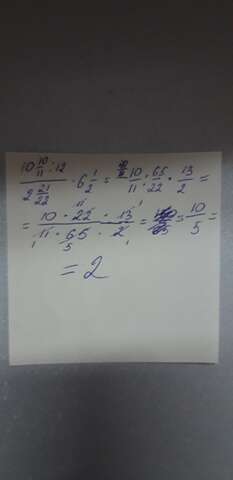 (10 10/11 : 12) / (2 21/22) · 6 1/2 = 10/11 : 65/22 · 13/2 =
= (10 · 22 · 13) / (11 · 65 · 2) = = 10/5 =
= 2